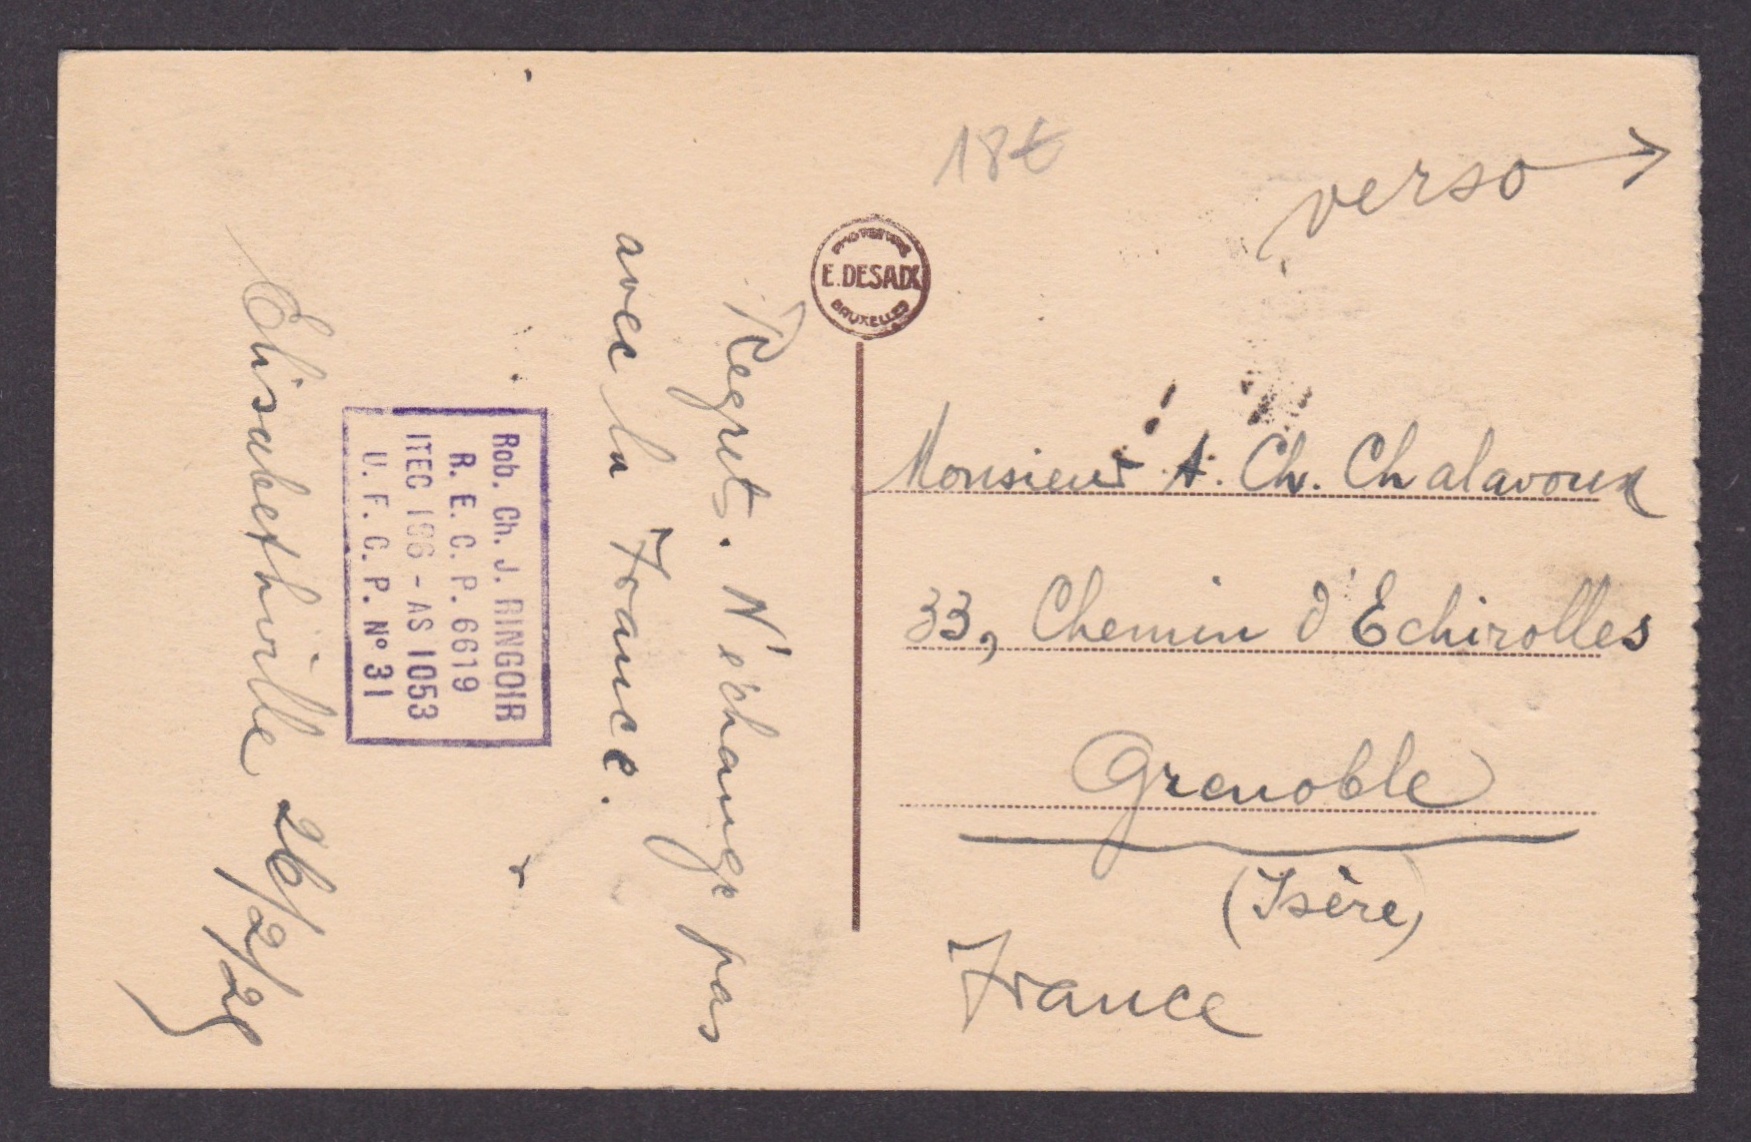 18€
verso
E. DESAIX
BRUXELLES
Regret. N'échange pas
avec la France.
Rob. Ch. J. RINGOIR
R. E. C. P. 6619
ITEC 196 - AS 1053
U. F. C. P. Nº 31
Elisabethville 26/2/28
Monsieur A. Ch. Chalavoux
33, Chemin d'Echirolles
Grenoble
(Isère)
France